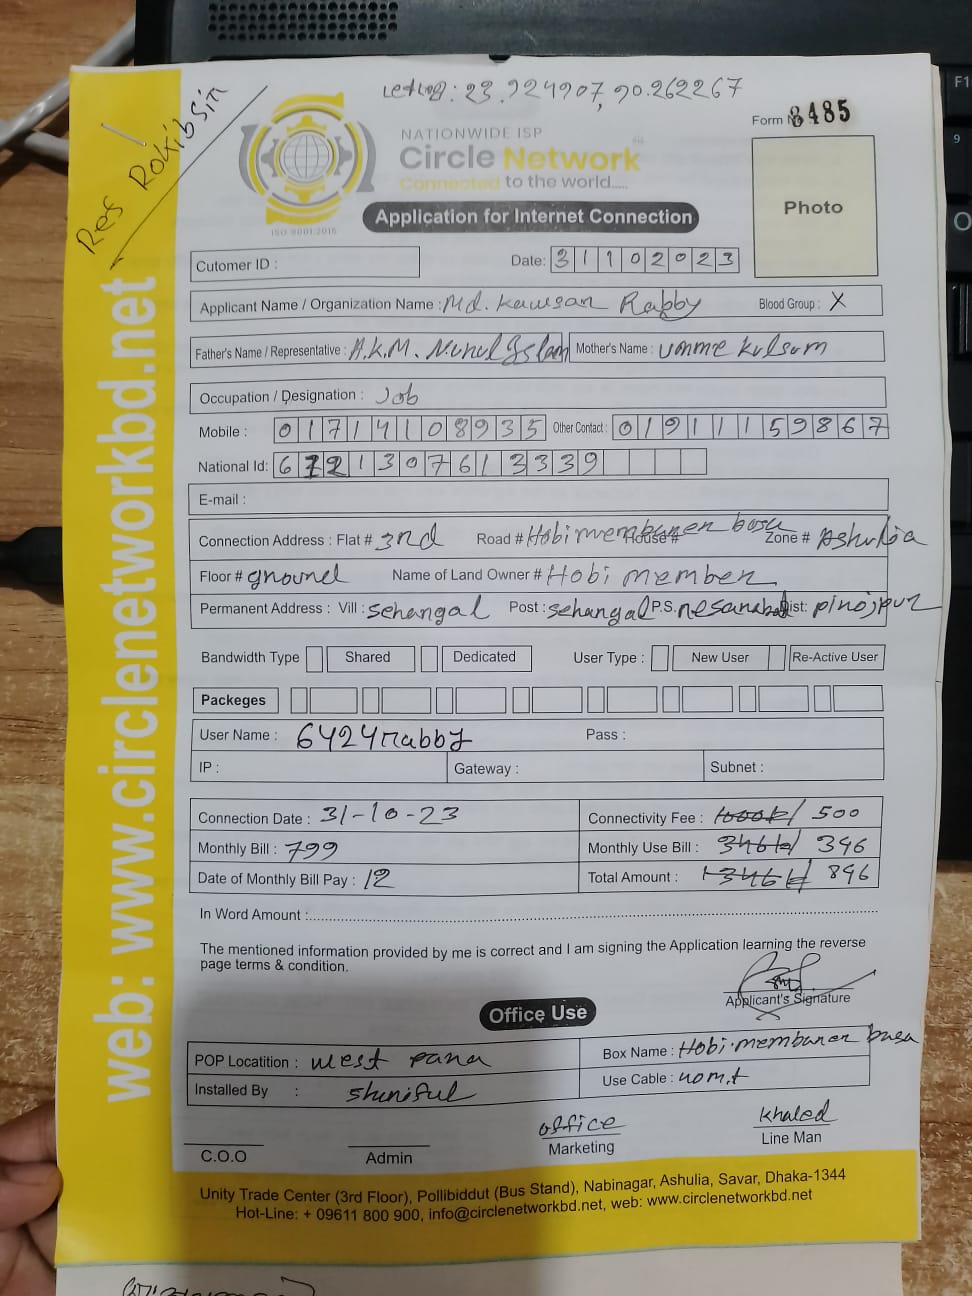 23.924907, 90.262267
Form No 8485
Ref Rakibsir
NATIONWIDE ISP
Circle Network
Connected to the world.....
ISO 9001:2015
Application for Internet Connection
Photo
Cutomer ID :
Date: 31102023
Applicant Name / Organization Name : Md. Kawsar Rabby Blood Group : X
Father's Name / Representative : A.K.M. Nurul Islam Mother's Name : Umme Kulsum
Occupation / Designation : Job
Mobile : 01714108935 Other Contact : 01911159867
National Id:
E-mail :
Connection Address : Flat # 3rd Road # Hobi membarer basa House # Zone # Ashulia
Floor # ground Name of Land Owner # Hobi member
Permanent Address : Vill : sehangal Post : sehangal P.S. nesarabad Dist: pirojpur
Bandwidth Type Shared Dedicated User Type : New User Re-Active User
Packeges
User Name : 6424rabby Pass :
IP : Gateway : Subnet :
Connection Date : 31-10-23 Connectivity Fee : 500
Monthly Bill : 799 Monthly Use Bill : 396
Date of Monthly Bill Pay : 12 Total Amount : 896
In Word Amount :
The mentioned information provided by me is correct and I am signing the Application learning the reverse
page terms & condition.
Applicant's Signature
Office Use
POP Locatition : west para Box Name : Hobi membarer basa
Installed By : Shariful Use Cable :
C.O.O Admin office Marketing Khaled Line Man
Unity Trade Center (3rd Floor), Pollibiddut (Bus Stand), Nabinagar, Ashulia, Savar, Dhaka-1344
Hot-Line: + 09611 800 900, info@circlenetworkbd.net, web: www.circlenetworkbd.net
web: www.circlenetworkbd.net
F1
9
O